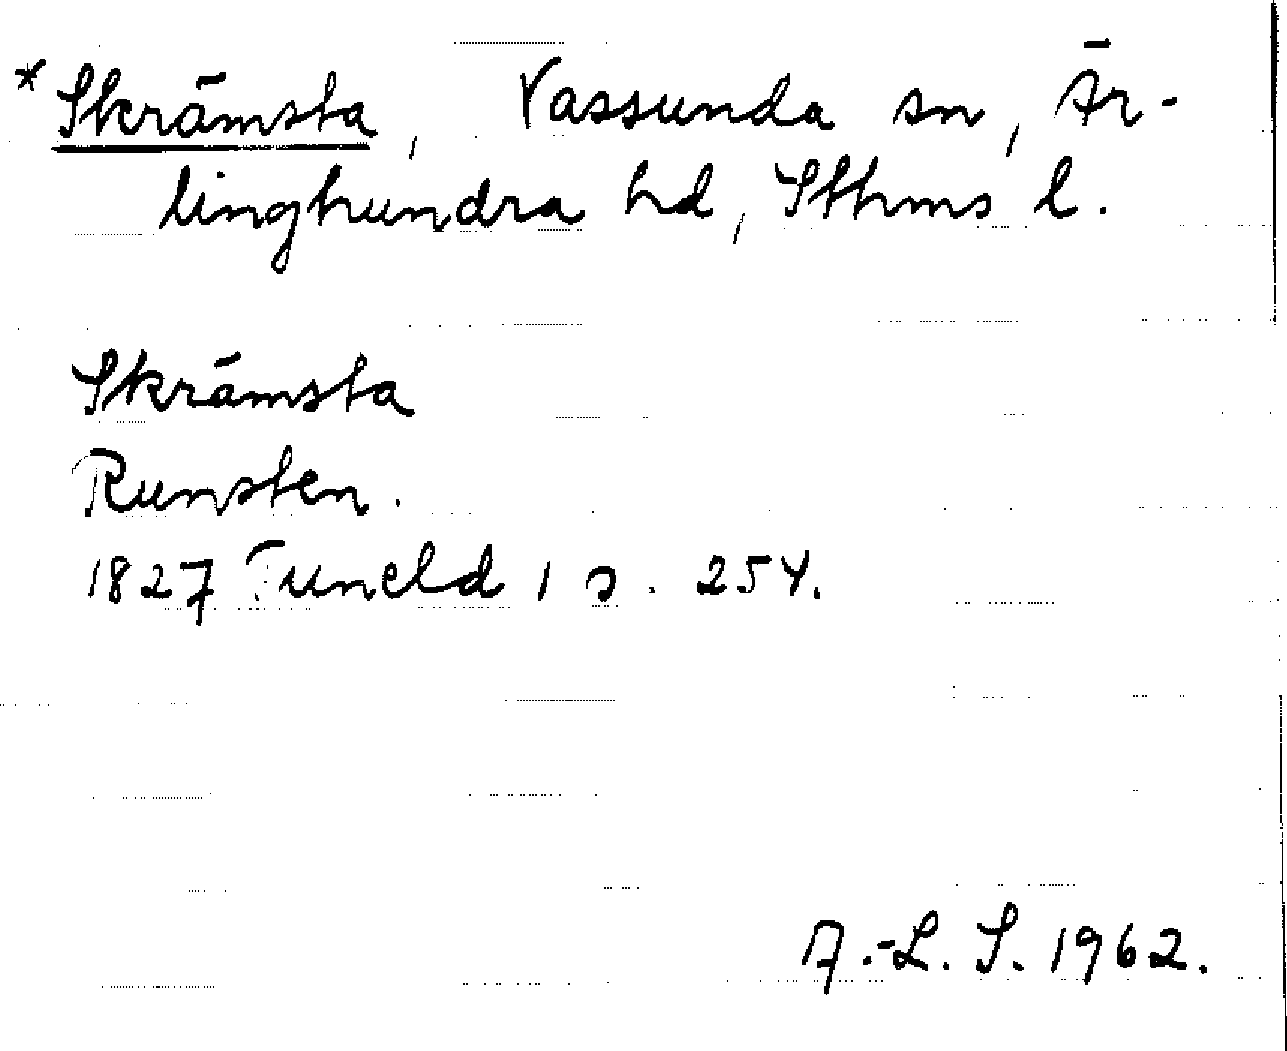 *Skrämsta, Vassunda sn, Är-
linghundra hd, Sthms l.
Skrämsta
Runsten.
1827 Tuneld 1 s. 254.
A.-L. S. 1962.